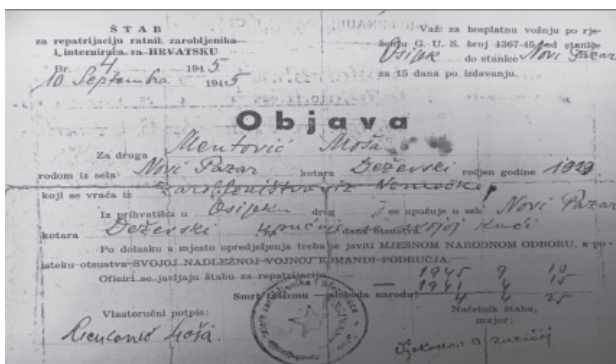 ŠTAB
za repatrijaciju ratnih zarobljenika
i interniraca za HRVATSKU
Br. 4 1945
10 Septembra 1945
Važi za besplatnu vožnju po rje-
šenju G. U. S. broj 1367-45 od stanice
Osijek do stanice Novi Pazar
za 15 dana po izdavanju.
Objava
Za druga Mentović Moša
rodom iz sela Novi Pazar kotara Deževski rodjen godine
koji se vraća iz zarobljeništva iz Nemačke
Iz prihvatilišta u Osijeku drug se upućuje u selo Novi Pazar
kotara Deževski upućuje svojoj kući
Po dolasku u mjesto opredjeljenja treba se javiti MJESNOM NARODNOM ODBORU, a po-
isteku otsustva SVOJOJ NADLEŽNOJ VOJNOJ KOMANDI PODRUČJA.
Oficiri se javljaju štabu za repatrijaciju. 1945 9 10
1941 4 15
Smrt fašizmu — sloboda narodu! 4 4 25
Vlastoručni potpis:
Moša
Načelnik štaba,
major: